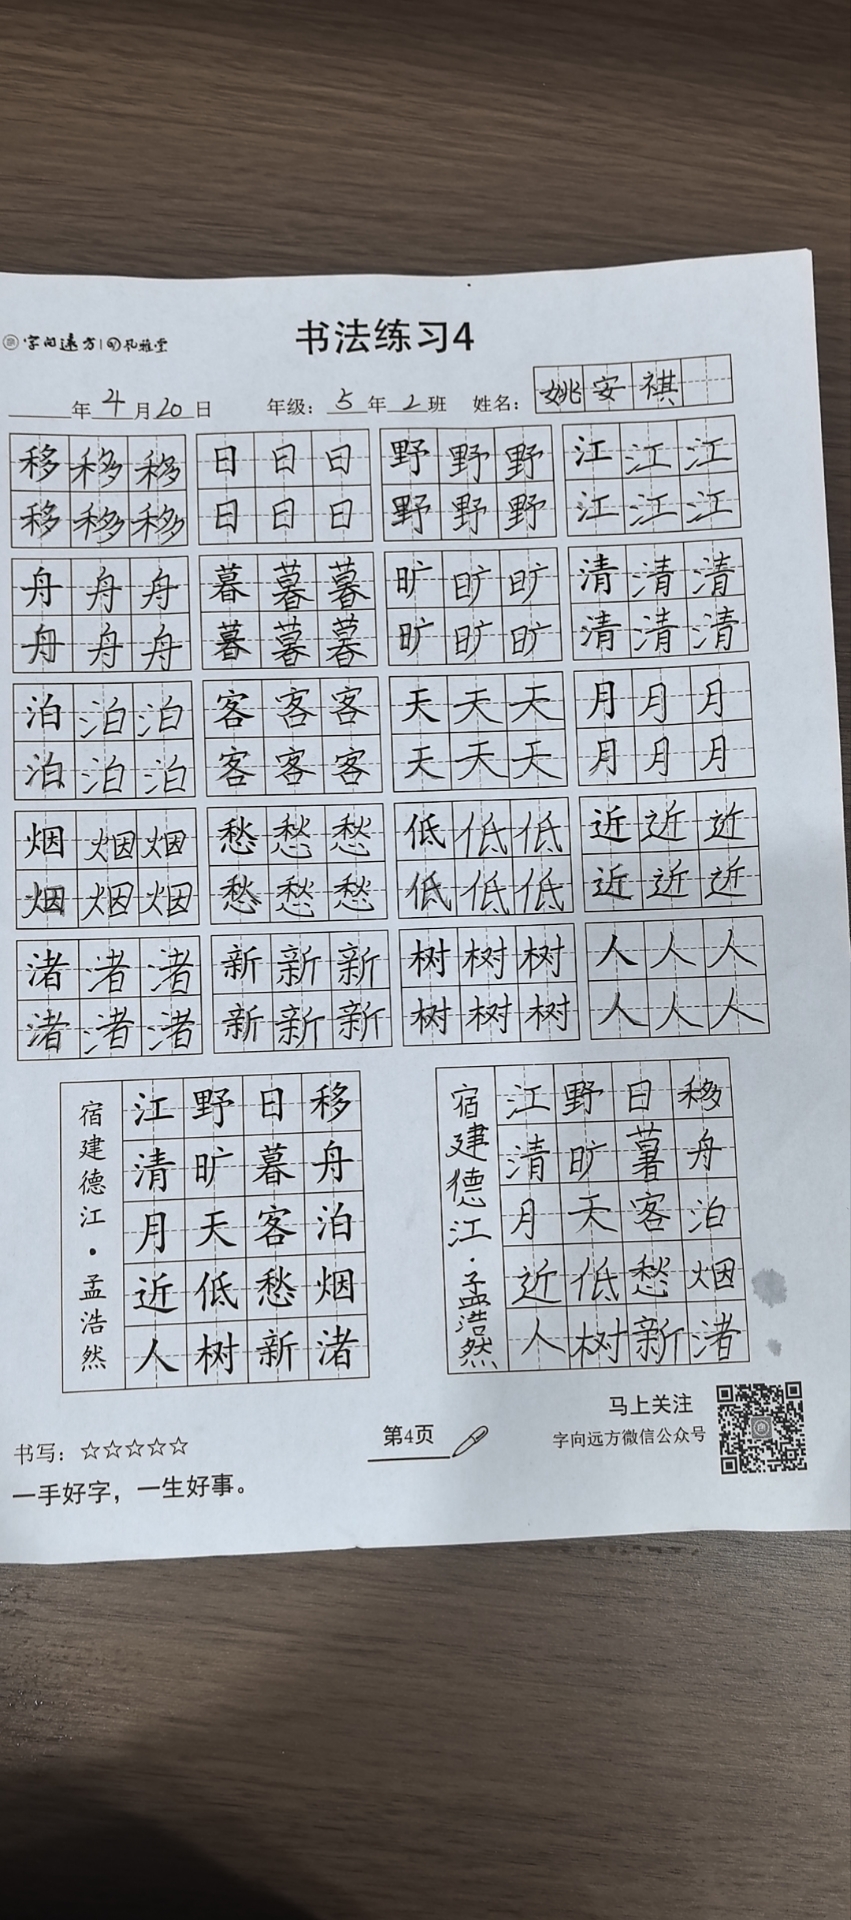 字向远方 孔雅堂
书法练习4
年4月20日 年级：5年2班 姓名：姚安祺
移移移 日日日 野野野 江江江
移移移 日日日 野野野 江江江
舟舟舟 暮暮暮 旷旷旷 清清清
舟舟舟 暮暮暮 旷旷旷 清清清
泊泊泊 客客客 天天天 月月月
泊泊泊 客客客 天天天 月月月
烟烟烟 愁愁愁 低低低 近近近
烟烟烟 愁愁愁 低低低 近近近
渚渚渚 新新新 树树树 人人人
渚渚渚 新新新 树树树 人人人
宿建德江·孟浩然
江野日移
清旷暮舟
月天客泊
近低愁烟
人树新渚
宿建德江·孟浩然
江野日移
清旷暮舟
月天客泊
近低愁烟
人树新渚
书写：☆☆☆☆☆
一手好字，一生好事。
第4页
马上关注
字向远方微信公众号